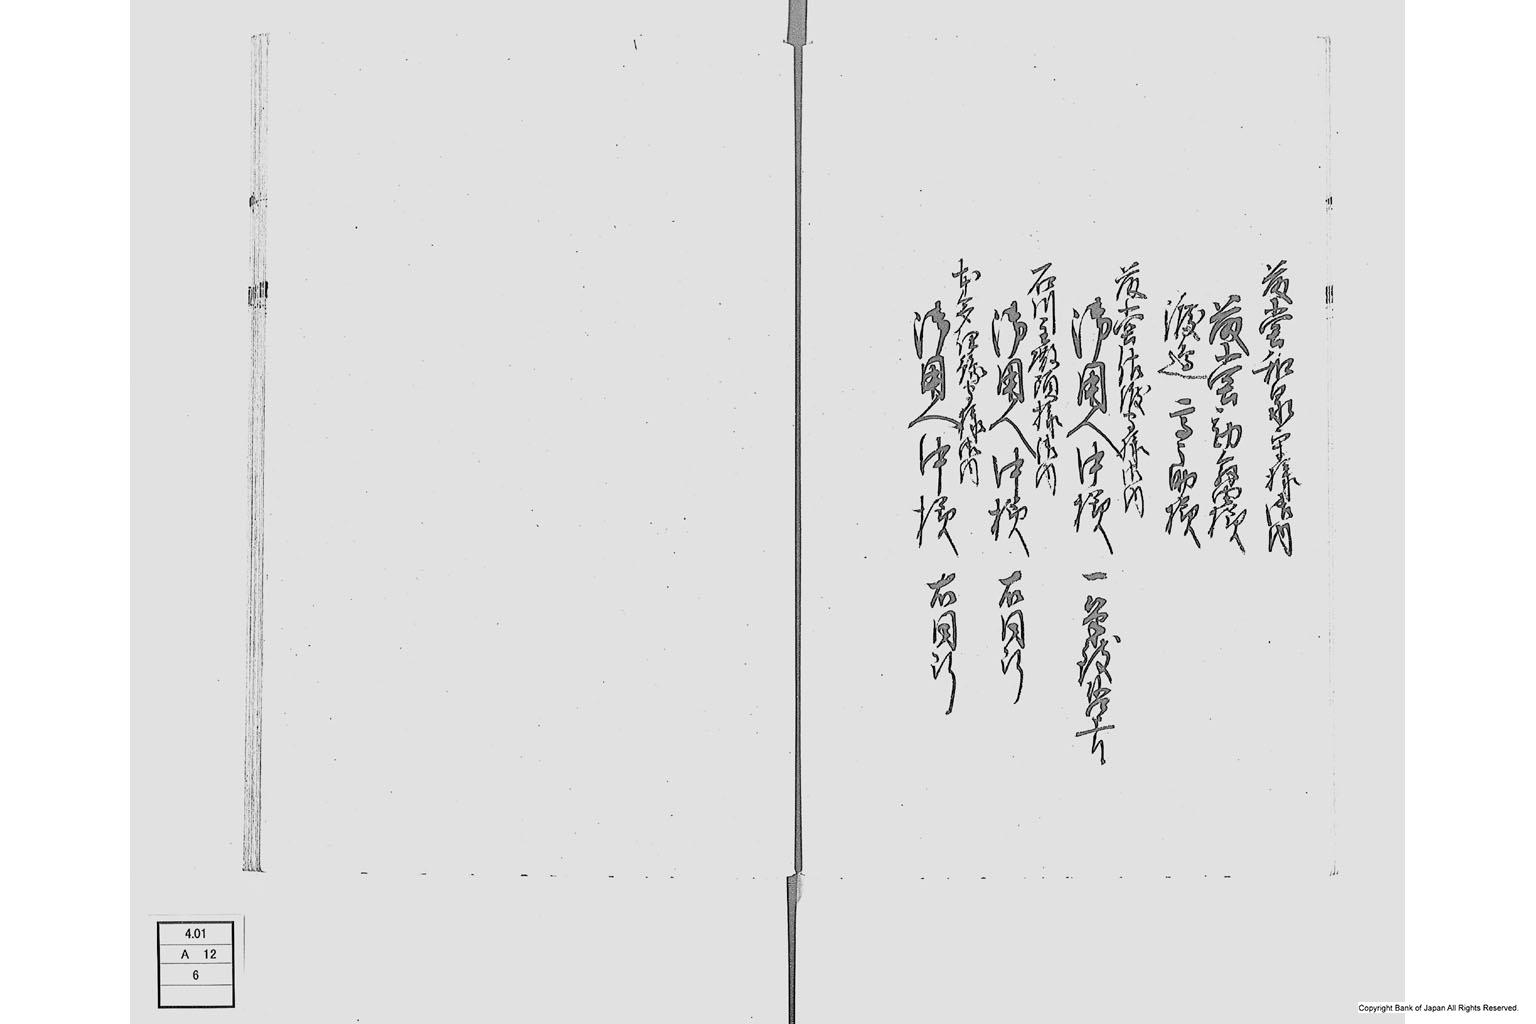 藤堂和泉守様御内
藤堂勘兵衛様
渡辺高之助様
藤堂佐渡守様御内
御用人中様
石川主殿頭様御内
御用人中様 右同断
本多伊豫守様御内
御用人中様 右同断
4.01
A 12
6
Copyright Bank of Japan All Rights Reserved.